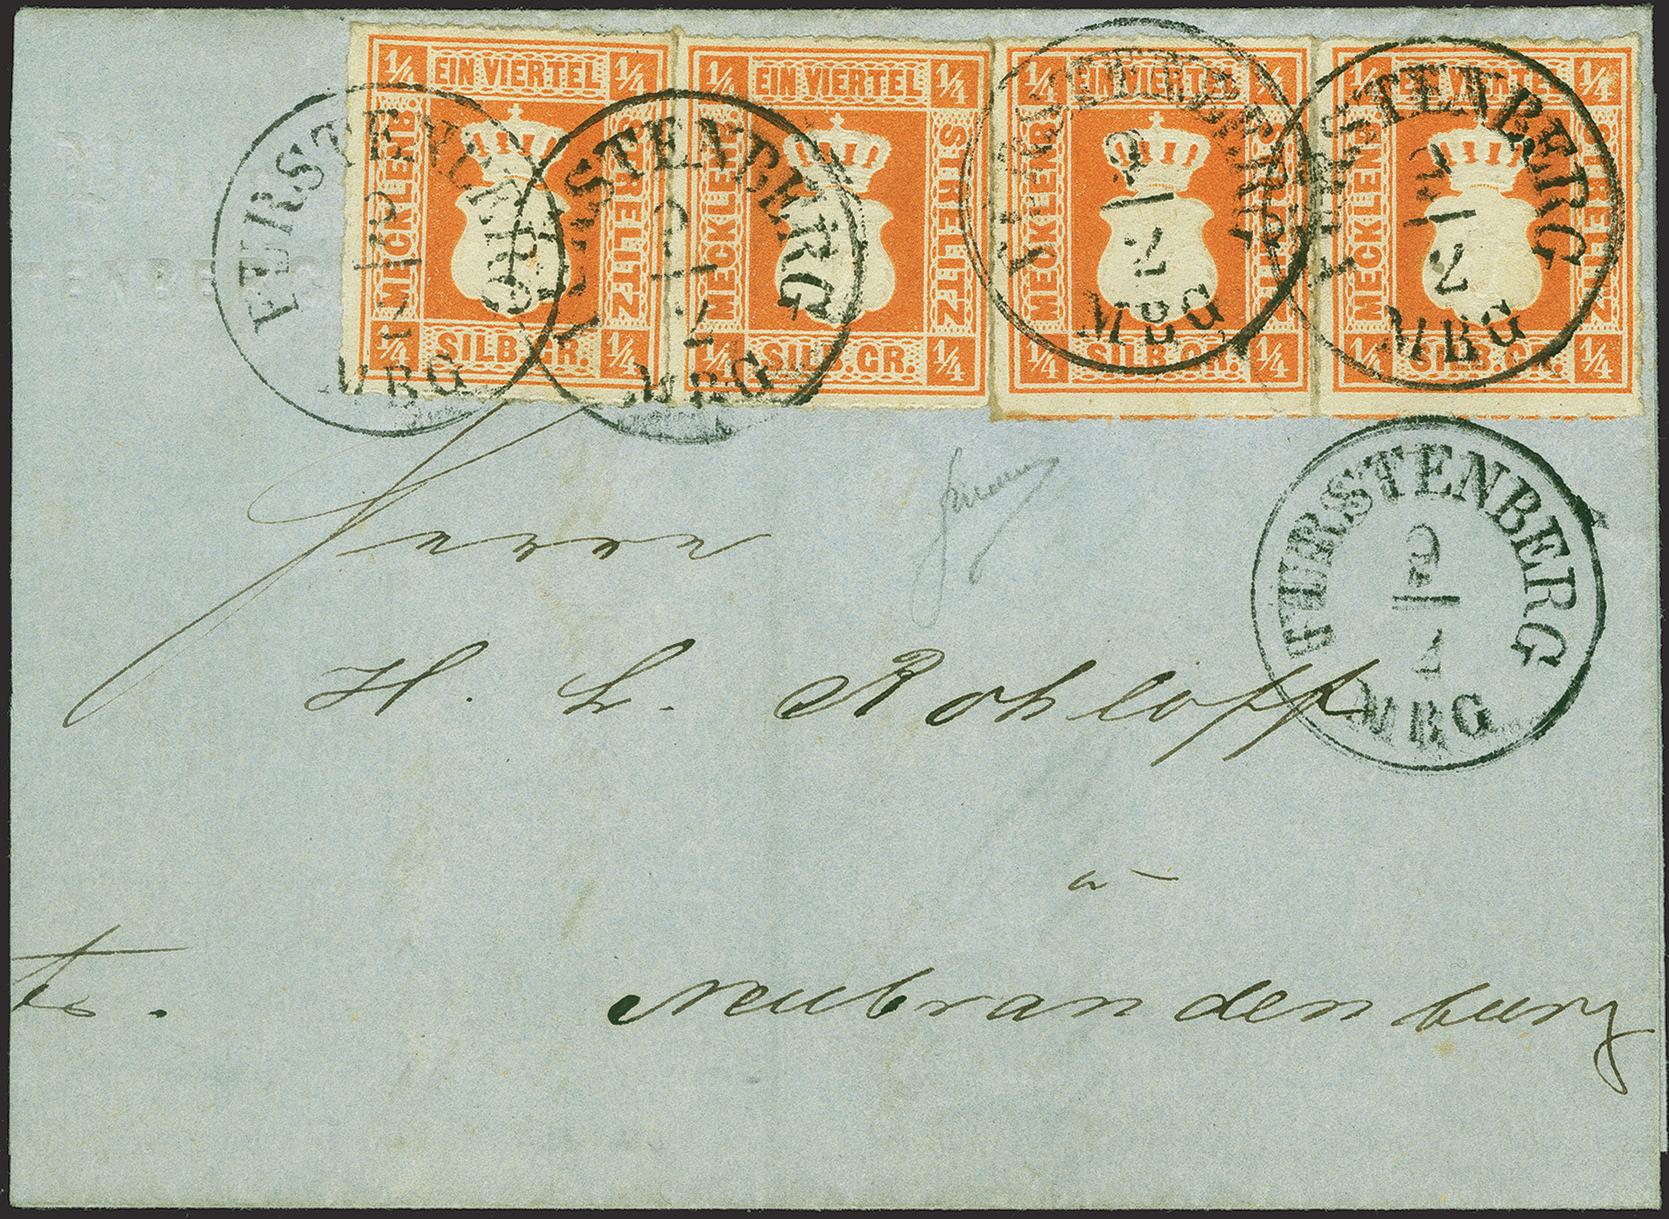 1/4 EIN VIERTEL 1/4
MECKLENB. STRELITZ
1/4 SILB.GR. 1/4
1/4 EIN VIERTEL 1/4
MECKLENB. STRELITZ
1/4 SILB.GR. 1/4
1/4 EIN VIERTEL 1/4
MECKLENB. STRELITZ
1/4 SILB.GR. 1/4
1/4 EIN VIERTEL 1/4
MECKLENB. STRELITZ
1/4 SILB.GR. 1/4
FURSTENBERG
MBG
FURSTENBERG
MBG
FURSTENBERG
MBG
FURSTENBERG
MBG
Herrn
FURSTENBERG
MBG
H. L. Rohloff
Neubrandenburg